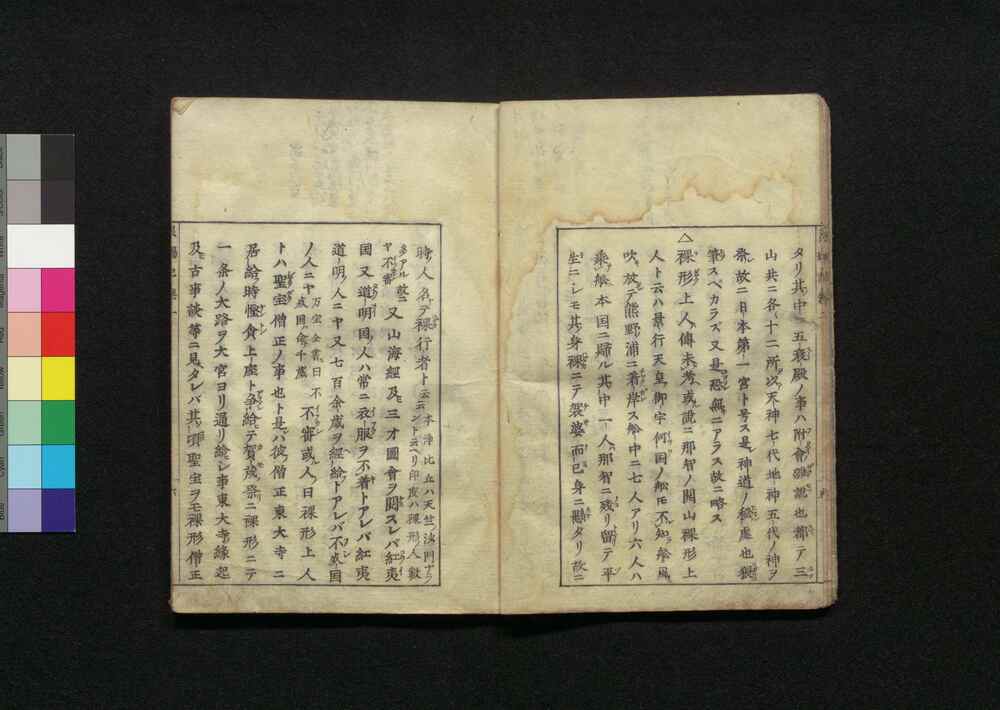 タリ其中ノ五衰殿ノ事ハ附會ノ雜說也都テ三
山共ニ各十二所次天神七代地神五代ノ神ヲ
祭故ニ日本第一宮ト号ス是神道ノ秘慮也猥
筆スベカラズ又是恐無ニアラス故ニ略ス
△裸形上人傳未考或說ニ那智ノ開山裸形上
人ト云ハ景行天皇御宇何国ノ舩トモ不知舩風
吹放テ熊野浦ニ着岸ス舩中ニ七人アリ六人ハ
乘舩本国ニ歸ル其中ニ一人那智ニ残リ留テ平
生ニシモ其身裸ニテ袈婆而已身ニ懸タリ故ニ
時人名テ裸行者ト云云 本淨比丘ハ天竺ノ沙門ナラントエヘリ印度ハ裸形人數
多アル故ニヤ不審 又山海經及三才圖會ヲ閲スレバ紅夷
国又道明国人ハ常ニ衣服ヲ不着トアレバ紅夷
道明人ニヤ又七百余歳ヲ經給トアレバ不死国
ノ人ニヤ 万宝全書曰不死国人命千歳 不審或人曰裸形上人
トハ聖宝僧正ノ事也ト是ハ彼僧正東大寺ニ
居給時慳貪上座ト爭給テ賀茂祭ニ裸形ニテ
一条ノ大路ヲ大宮ヨリ通リ給シ事東大寺緣起
及古事談等ニ見タレバ其頃聖宝ヲモ裸形僧正